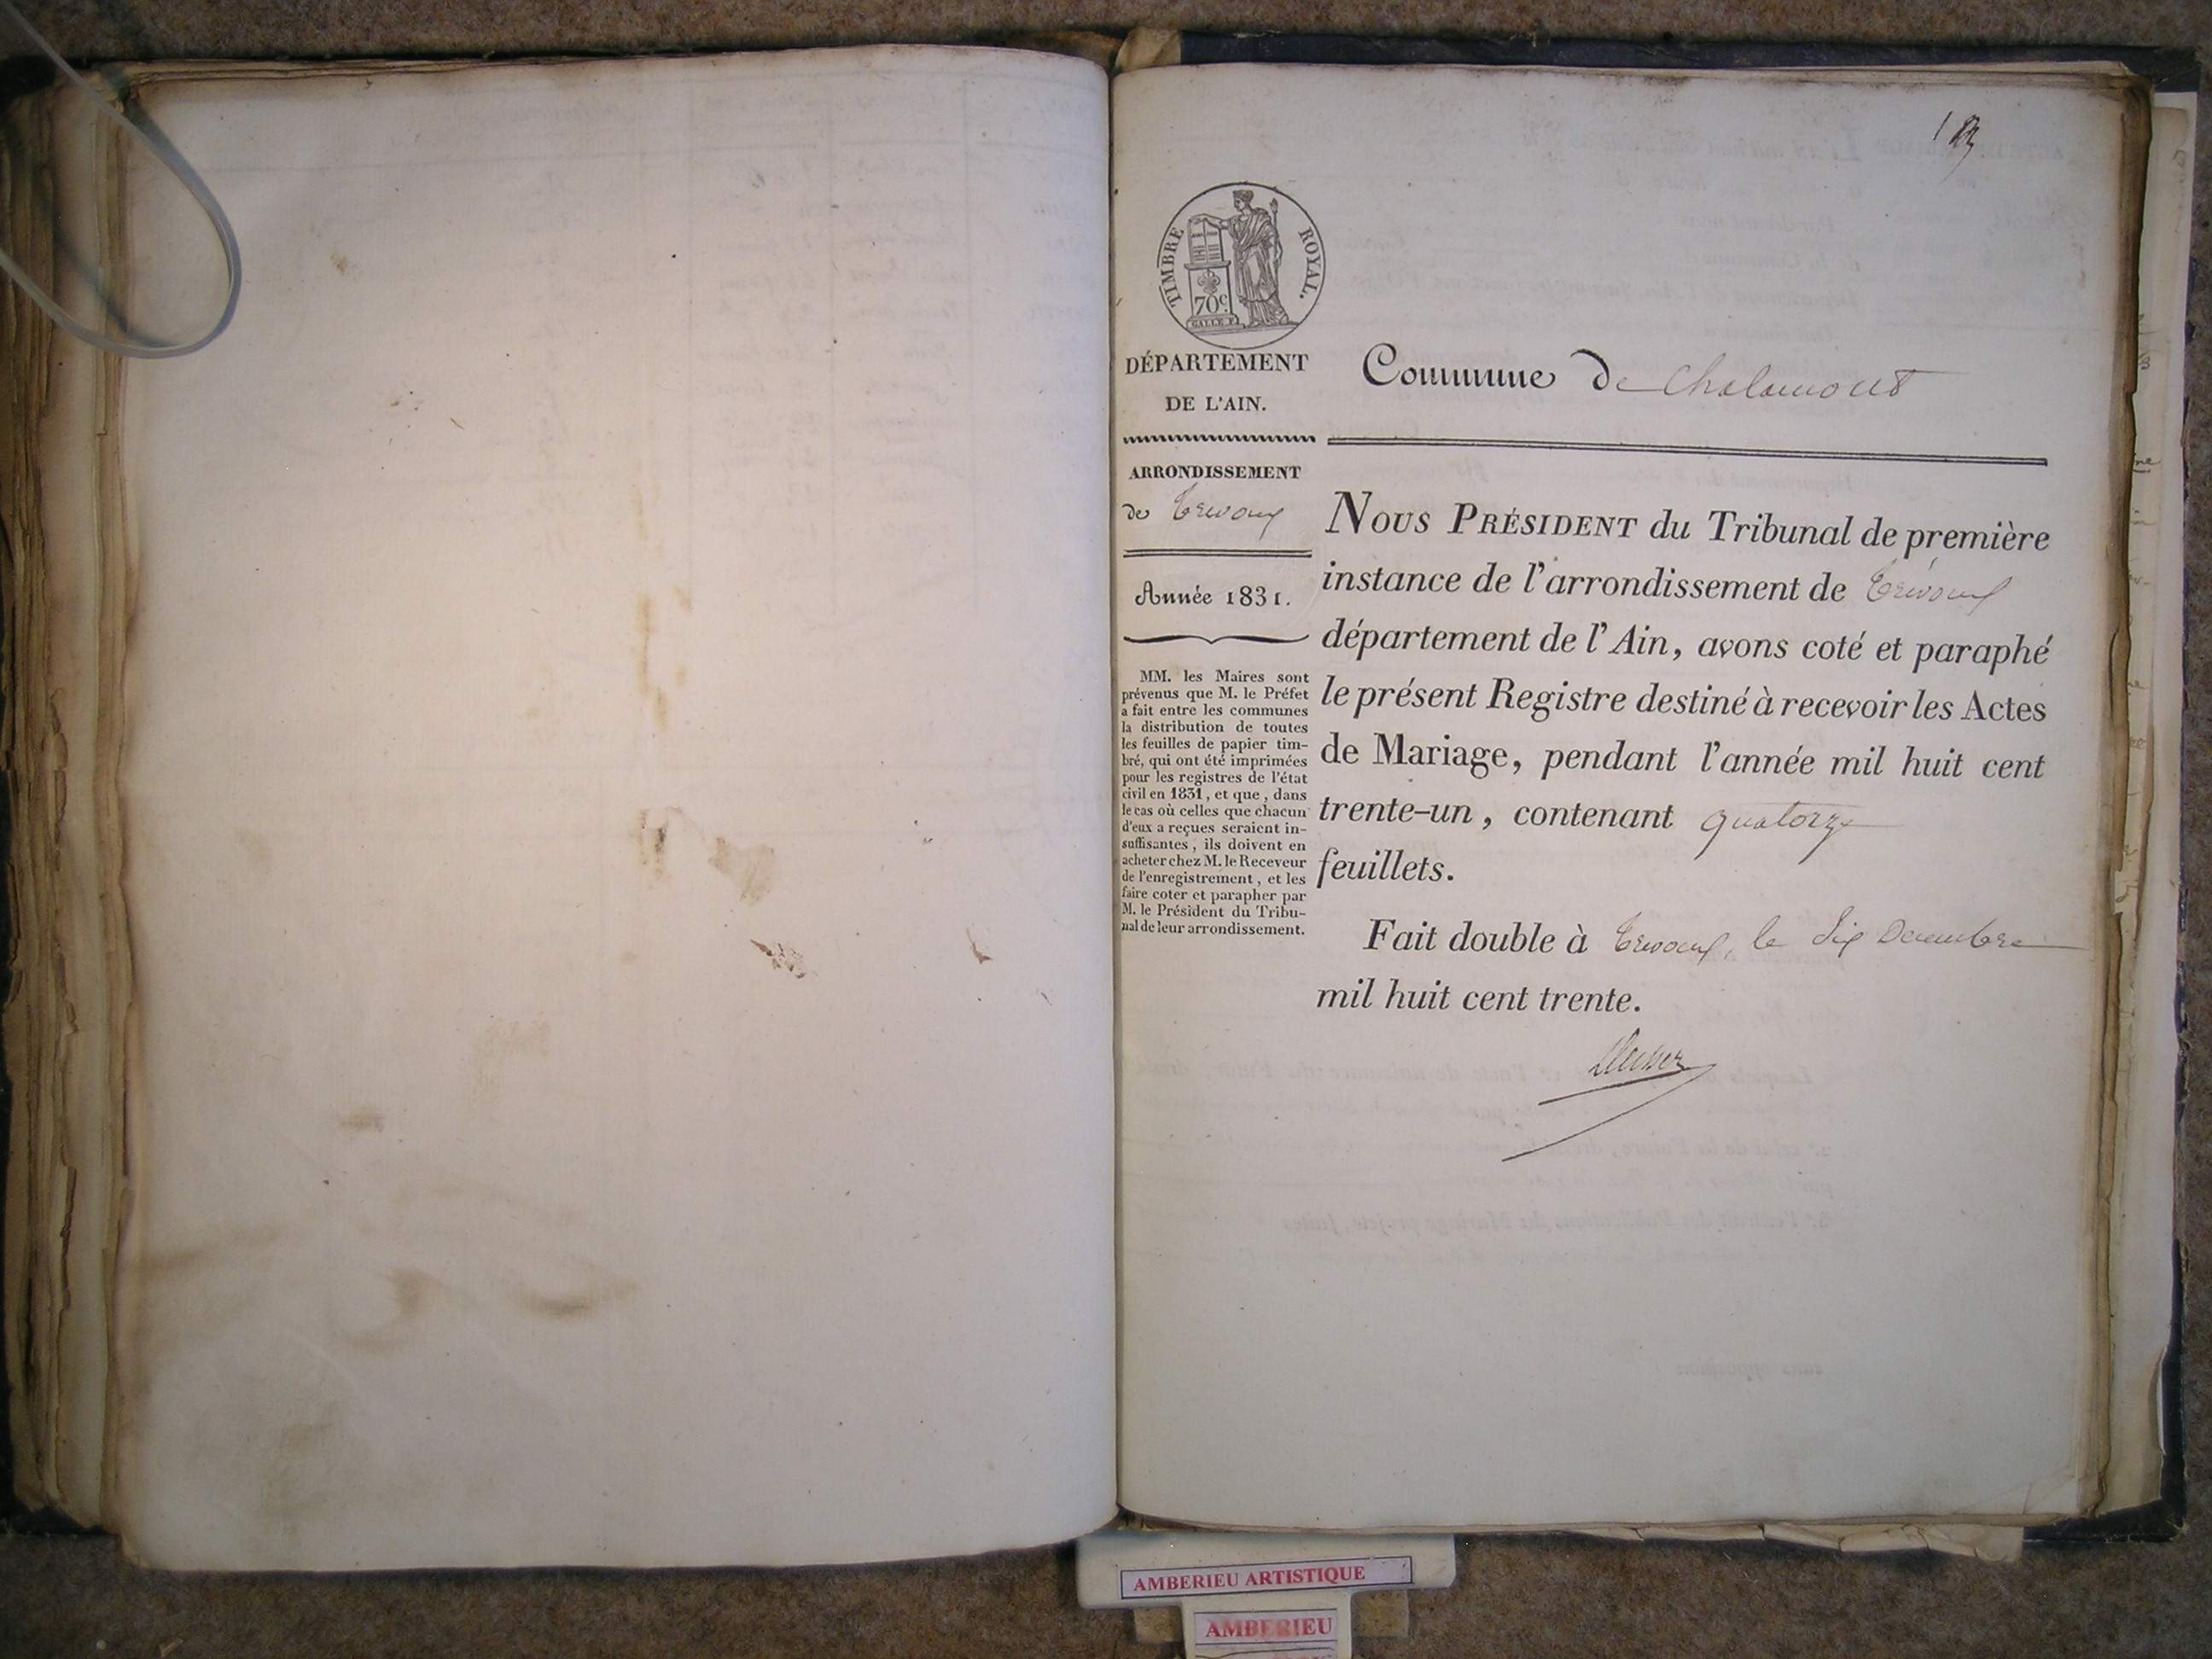 TIMBRE ROYAL.
70c.
GALLE F.
DÉPARTEMENT
DE L'AIN.
Commune de Chalamont
ARRONDISSEMENT
de Trevoux
Année 1831.
MM. les Maires sont
prévenus que M. le Préfet
a fait entre les communes
la distribution de toutes
les feuilles de papier tim-
bré, qui ont été imprimées
pour les registres de l'état
civil en 1831, et que, dans
le cas où celles que chacun
d'eux a reçues seraient in-
suffisantes, ils doivent en
acheter chez M. le Receveur
de l'enregistrement, et les
faire coter et parapher par
M. le Président du Tribu-
nal de leur arrondissement.
NOUS PRÉSIDENT du Tribunal de première
instance de l'arrondissement de Trévoux
département de l'Ain, avons coté et paraphé
le présent Registre destiné à recevoir les Actes
de Mariage, pendant l'année mil huit cent
trente-un, contenant quatorze
feuillets.
Fait double à Trevoux, le Dix Decembre
mil huit cent trente.
AMBERIEU ARTISTIQUE
AMBERIEU